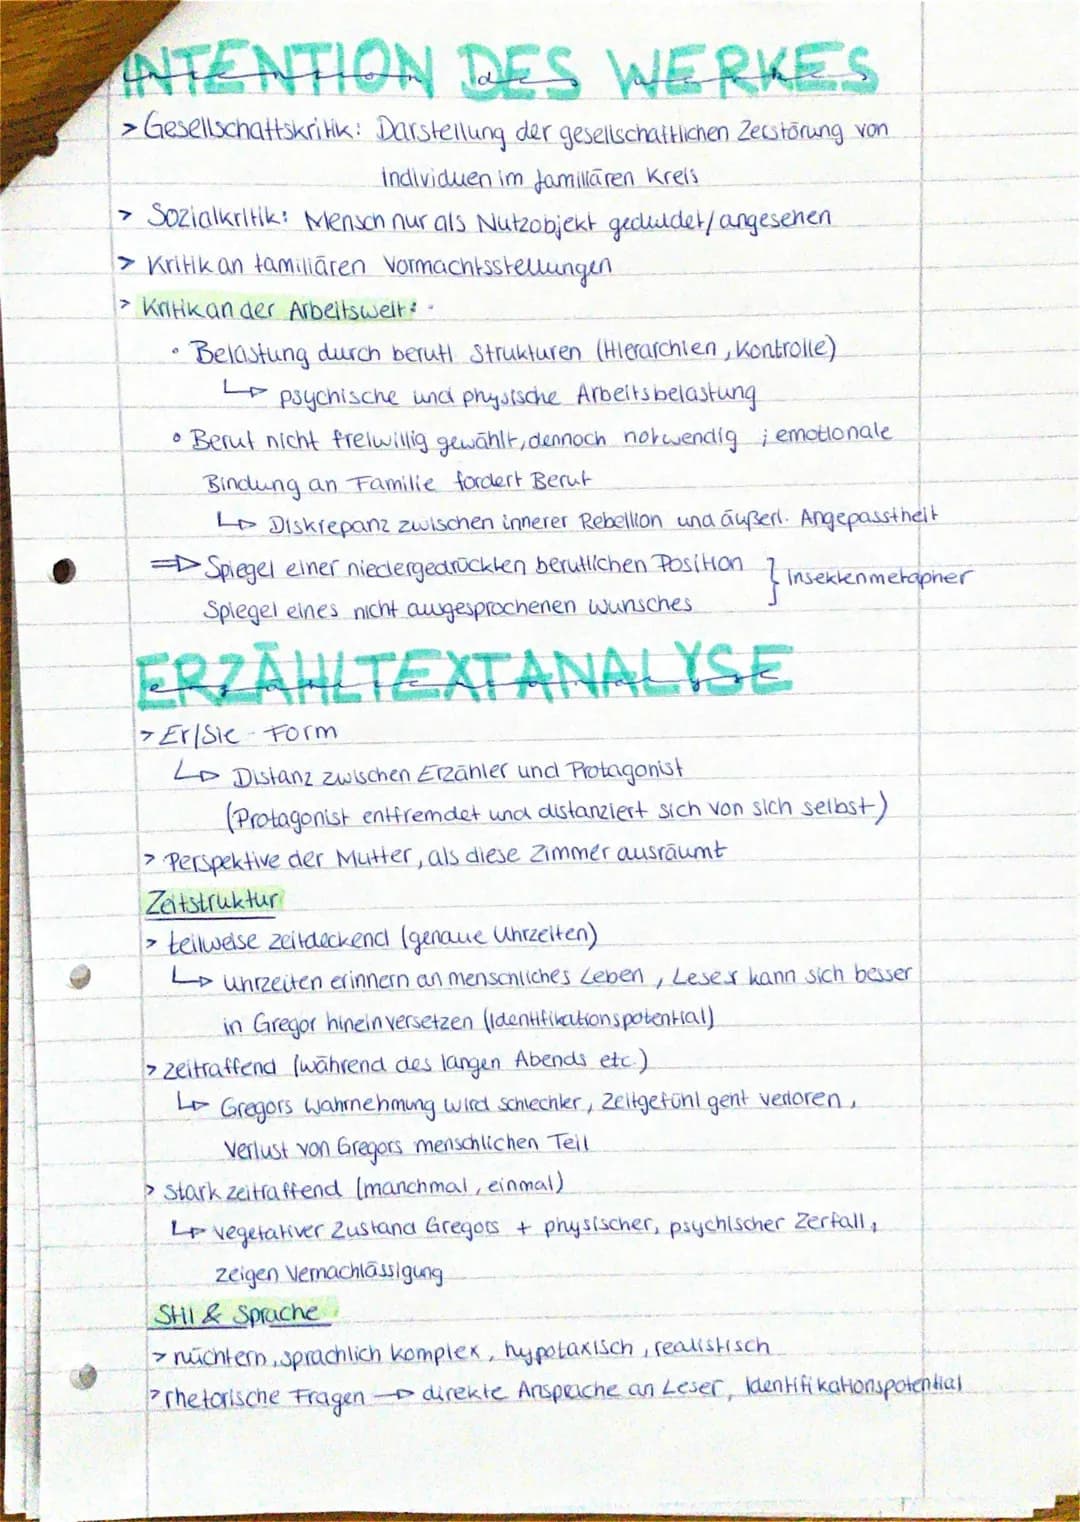 INTENTION DES WERKES
> Gesellschaftskritik: Darstellung der gesellschaftlichen Zerstörung von
Individuen im familiären Kreis
> Sozialkritik: Mensch nur als Nutzobjekt geduldet/angesehen
> Kritik an familiären Vormachtsstellungen
> Kritik an der Arbeitswelt:
• Belastung durch berufl. Strukturen (Hierarchien, Kontrolle)
↳ psychische und physische Arbeitsbelastung
• Beruf nicht freiwillig gewählt, dennoch notwendig ; emotionale
Bindung an Familie fordert Beruf
↳ Diskrepanz zwischen innerer Rebellion und äußerl. Angepasstheit
⇒ Spiegel einer niedergedrückten beruflichen Position } Insektenmetapher
Spiegel eines nicht ausgesprochenen Wunsches
ERZÄHLTEXTANALYSE
> Er/Sie - Form
↳ Distanz zwischen Erzähler und Protagonist
(Protagonist entfremdet und distanziert sich von sich selbst)
> Perspektive der Mutter, als diese Zimmer ausräumt
Zeitstruktur
> teilweise zeitdeckend (genaue Uhrzeiten)
↳ Uhrzeiten erinnern an menschliches Leben, Leser kann sich besser
in Gregor hineinversetzen (Identifikationspotential)
> zeitraffend (während des langen Abends etc.)
↳ Gregors Wahrnehmung wird schlechter, Zeitgefühl geht verloren,
Verlust von Gregors menschlichen Teil
> stark zeitraffend (manchmal, einmal)
↳ vegetativer Zustand Gregors + physischer, psychischer Zerfall,
zeigen Vernachlässigung
Stil & Sprache
> nüchtern, sprachlich komplex, hypotaxisch, realistisch
> rhetorische Fragen → direkte Ansprache an Leser, Identifikationspotential